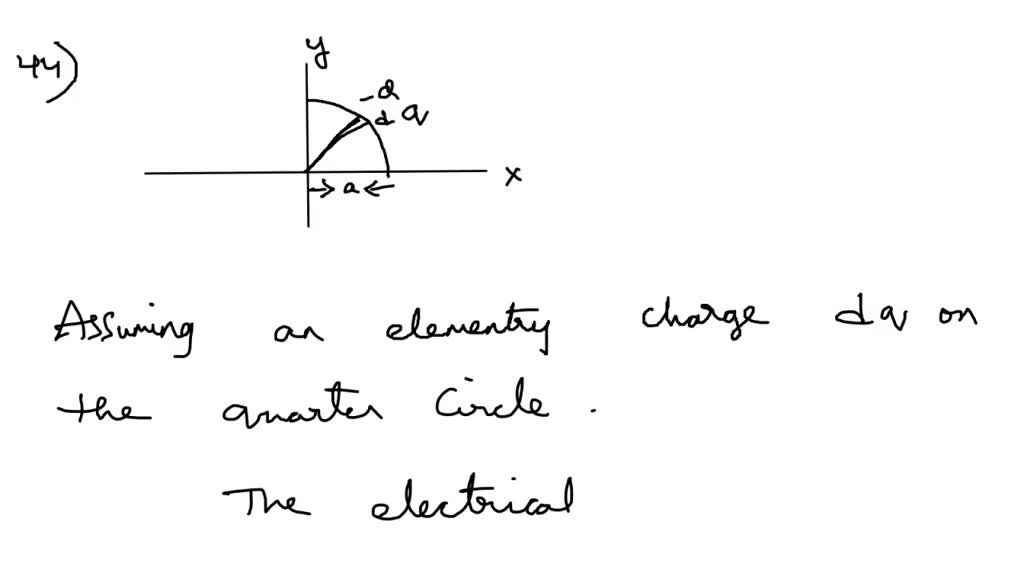 44)
y
-Q
dq
→ a ←
x
Assuming an elementry charge dq on
the quarter Circle.
The electrical